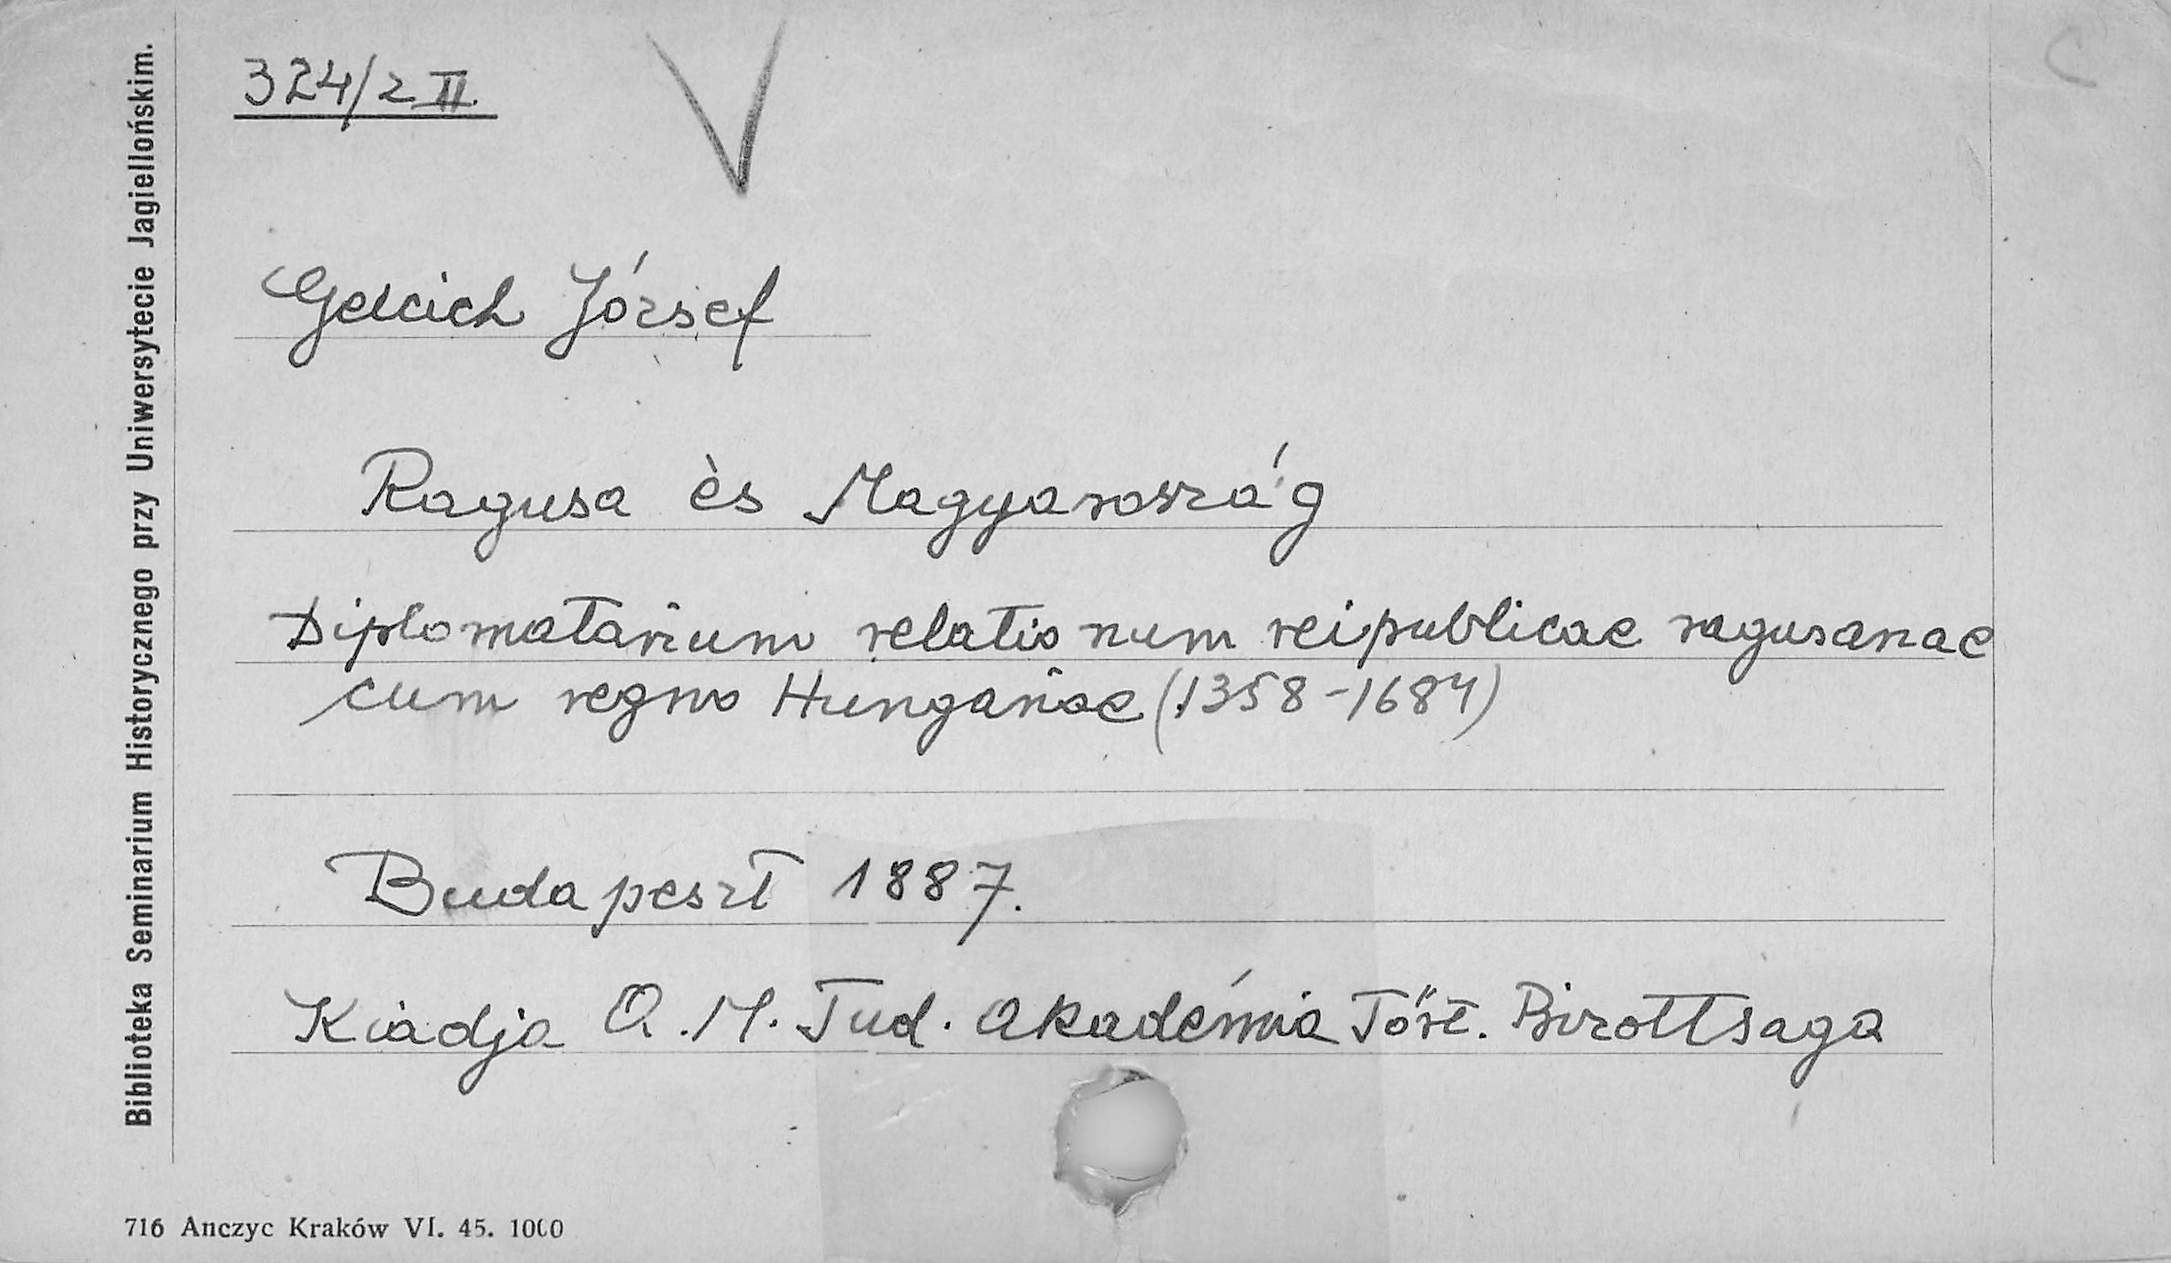 324/2 II.
V
C
Gelcich József
Ragusa ès Magyarország
Diplomatarium relationum reipublicae ragusanae
cum regno Hungariae (1358-1684)
Budapeszt 1887.
Kiadja A. M. Tud. Akadémia Tőrt. Birottsaga
Biblioteka Seminarium Historycznego przy Uniwersytecie Jagiellońskim.
716 Anczyc Kraków VI. 45. 1000